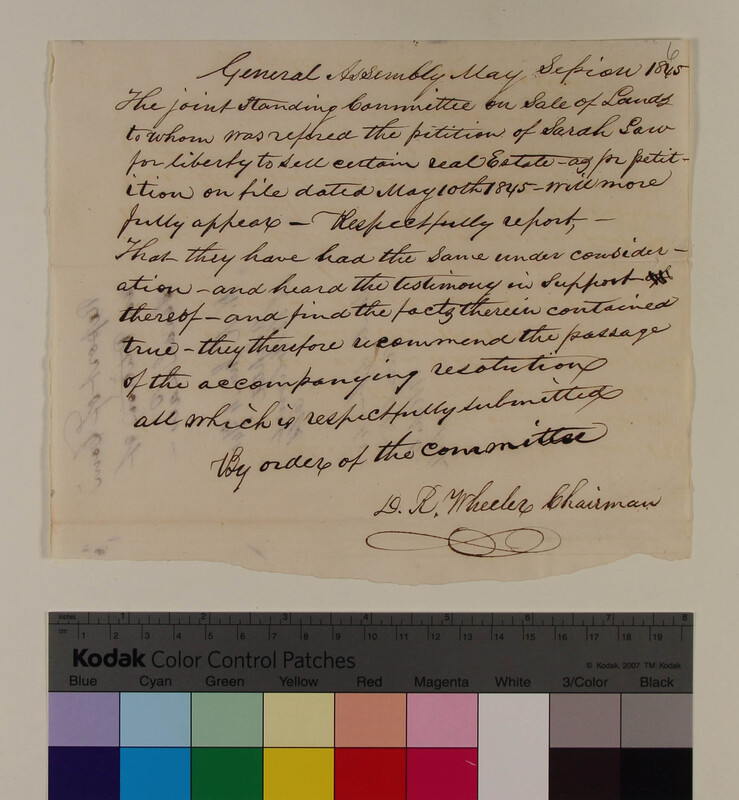 6
General Assembly May Session 1845
The joint Standing Committee on Sale of Lands
to whom was refered the petition of Sarah Law
for liberty to sell certain real Estate - as pr petit-
ition on file dated May 10th 1845 - will more
fully appear - Respectfully report, -
That they have had the same under consider-
ation - and heard the testimony in support
thereof - and find the facts therein contained
true - they therefore recommend the passage
of the accompanying resolution
all which is respectfully submitted
By order of the committee
D. R. Wheeler Chairman
inches 1 2 3 4 5 6 7 8
cm 1 2 3 4 5 6 7 8 9 10 11 12 13 14 15 16 17 18 19
Kodak Color Control Patches
© Kodak, 2007 TM: Kodak
Blue Cyan Green Yellow Red Magenta White 3/Color Black